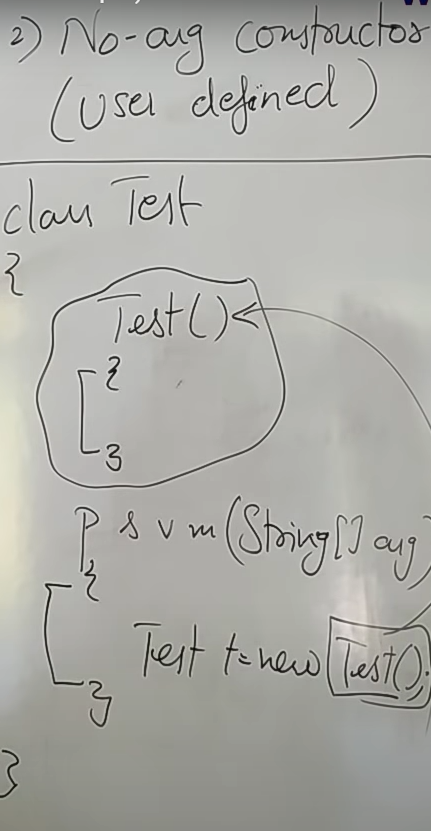 2) No-arg constructor
(User defined)
class Test
{
Test()
{
}
p s v m(String[] arg)
{
Test t=new Test();
}
}